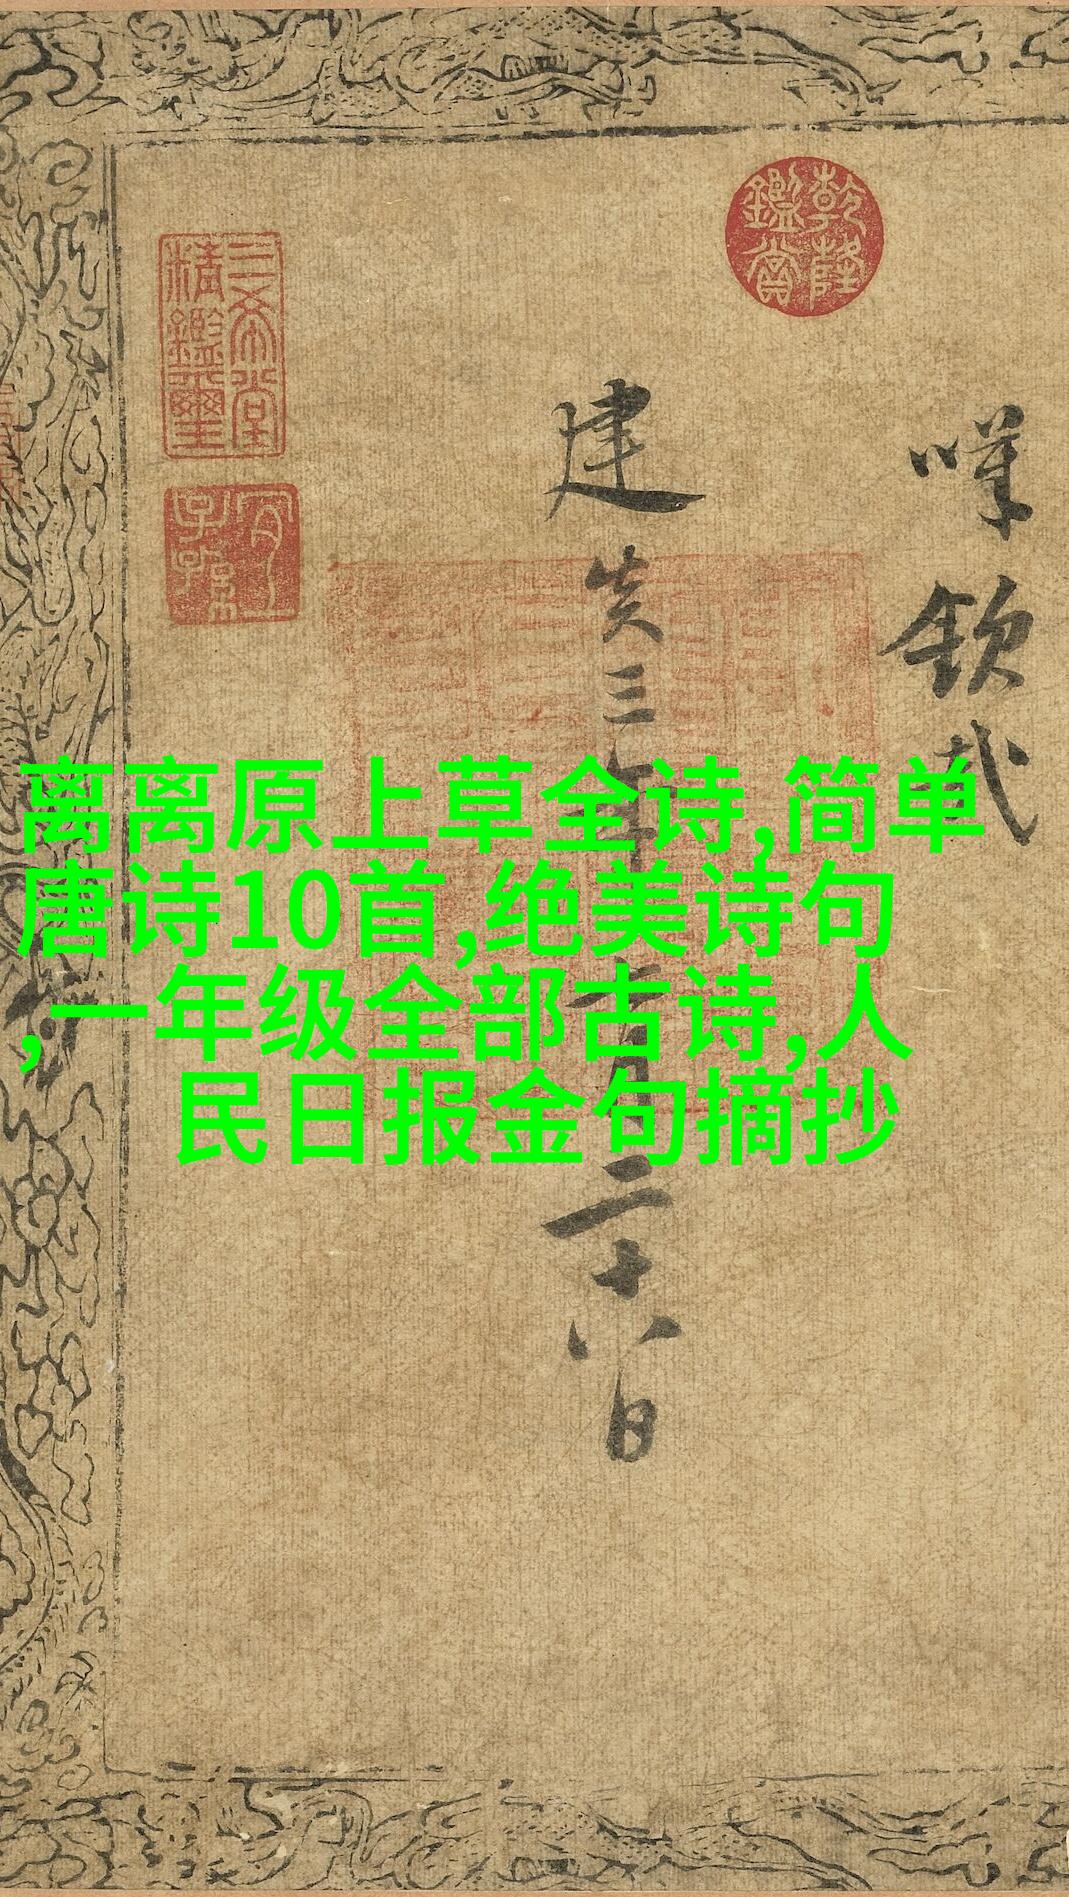 离离原上草全诗,简单
唐诗10首,绝美诗句
,一年级全部古诗,人
民日报金句摘抄
欽哉
建炎三年十月二十八日
乾隆鑑賞
三希堂精鑑璽
宜子孫